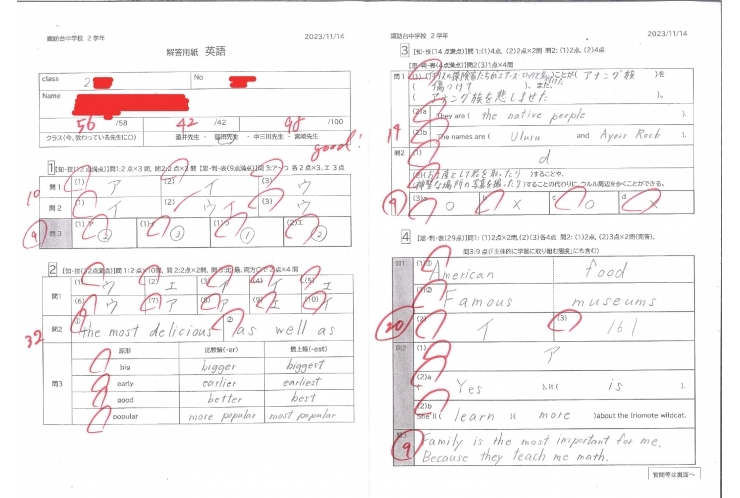 諏訪台中学校 2学年
2023/11/14
解答用紙 英語
class
2
No
Name
56 /58
42 /42
98 /100
クラス(今、教わっている先生に○)
酒井先生・福田先生・中三川先生・宮崎先生
good!
1 【知・技(12点満点)】問1:2点×3問、問2:2点×3問 【思・判・表(9点満点)】問3:ア～ウ 各2点×3、エ 3点
10
問1 (1) ア (2) イ (3) ウ
問2 (1) イ (2) ウ (3) ウ
9
問3
2
32
問1 (1) ウ (2) エ (3) イ (4) イ (5) エ
(6) ウ (7) ア (8) ア (9) エ (10) イ
問2 ① the most delicious ② as well as
問3
原形 比較級(-er) 最上級(-est)
big bigger biggest
early earlier earliest
good better best
popular more popular most popular
諏訪台中学校 2学年
2023/11/14
3 【知・技(14点満点)】問1:(1)4点、(2)2点×2問 問2:(1)2点、(2)4点
【思・判・表(4点満点)】問2(3)1点×4問
問1
アナング族 )を
傷つけて )、また、
アナング族を悲しませた
(2)a They are ( the native people
14
(2)b The names are ( Uluru and Ayers Rock ).
問2
(1) d
)することや、
神聖な場所の写真を撮ったり )することの代わりに、ウルル周辺を歩くことができる。
4
(3)a ○ b × c ○ d ×
4 【思・判・表(29点)】問1:(1)2点×2問、(2)(3)各4点 問2:(1)2点、(2)3点×2問(完答)、
問3:9点(「主体的に学習に取り組む態度」にも含む)
問1
(1)① American food
(1)② Famous museums
20
(2) イ (3) 161
問2
(1) ア
(2)a ( Yes ), it ( is ).
(2)b She'll ( learn )( more )about the Iriomote wildcat.
問3
9
Family is the most important for me.
Because they teach me math.
質問等は裏面へ